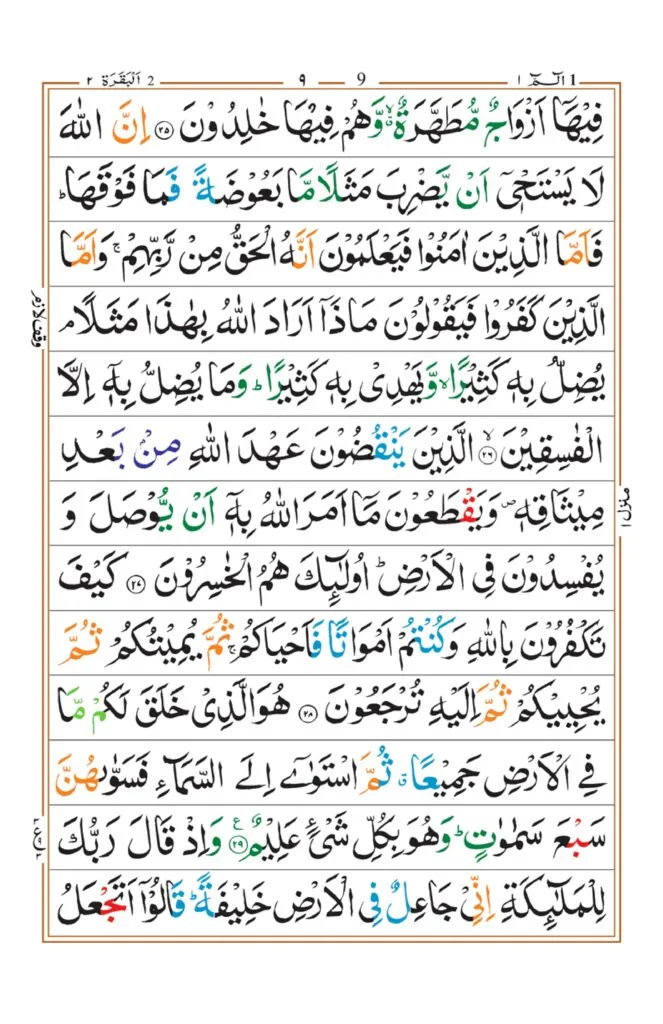 الٓمّٓ ١ 1
9 ٩
2 اَلْبَقَرَة ٢
فِيْهَاۤ اَزْوَاجٌ مُّطَهَّرَةٌ ۙ وَّهُمْ فِيْهَا خٰلِدُوْنَ ﴿۲۵﴾ اِنَّ اللّٰهَ
لَا يَسْتَحْيٖۤ اَنْ يَّضْرِبَ مَثَلًا مَّا بَعُوْضَةً فَمَا فَوْقَهَا ؕ
فَاَمَّا الَّذِيْنَ اٰمَنُوْا فَيَعْلَمُوْنَ اَنَّهُ الْحَقُّ مِنْ رَّبِّهِمْ ۚ وَاَمَّا
الَّذِيْنَ كَفَرُوْا فَيَقُوْلُوْنَ مَاذَاۤ اَرَادَ اللّٰهُ بِهٰذَا مَثَلًا ۘ
وقف لازم
يُضِلُّ بِهٖ كَثِيْرًا ۙ وَّيَهْدِىْ بِهٖ كَثِيْرًا ؕ وَمَا يُضِلُّ بِهٖۤ اِلَّا
الْفٰسِقِيْنَ ۙ﴿۲۶﴾ الَّذِيْنَ يَنْقُضُوْنَ عَهْدَ اللّٰهِ مِنْۢ بَعْدِ
مِيْثَاقِهٖ ۪ وَيَقْطَعُوْنَ مَاۤ اَمَرَ اللّٰهُ بِهٖۤ اَنْ يُّوْصَلَ وَ
منزل ١
يُفْسِدُوْنَ فِى الْاَرْضِ ؕ اُولٰٓئِكَ هُمُ الْخٰسِرُوْنَ ﴿۲۷﴾ كَيْفَ
تَكْفُرُوْنَ بِاللّٰهِ وَكُنْتُمْ اَمْوَاتًا فَاَحْيَاكُمْ ۚ ثُمَّ يُمِيْتُكُمْ ثُمَّ
يُحْيِيْكُمْ ثُمَّ اِلَيْهِ تُرْجَعُوْنَ ﴿۲۸﴾ هُوَ الَّذِىْ خَلَقَ لَكُمْ مَّا
فِى الْاَرْضِ جَمِيْعًا ۗ ثُمَّ اسْتَوٰۤى اِلَى السَّمَآءِ فَسَوّٰىهُنَّ
سَبْعَ سَمٰوٰتٍ ؕ وَهُوَ بِكُلِّ شَىْءٍ عَلِيْمٌ ﴿۲۹﴾ وَاِذْ قَالَ رَبُّكَ
لِلْمَلٰٓئِكَةِ اِنِّىْ جَاعِلٌ فِى الْاَرْضِ خَلِيْفَةً ؕ قَالُوْۤا اَتَجْعَلُ